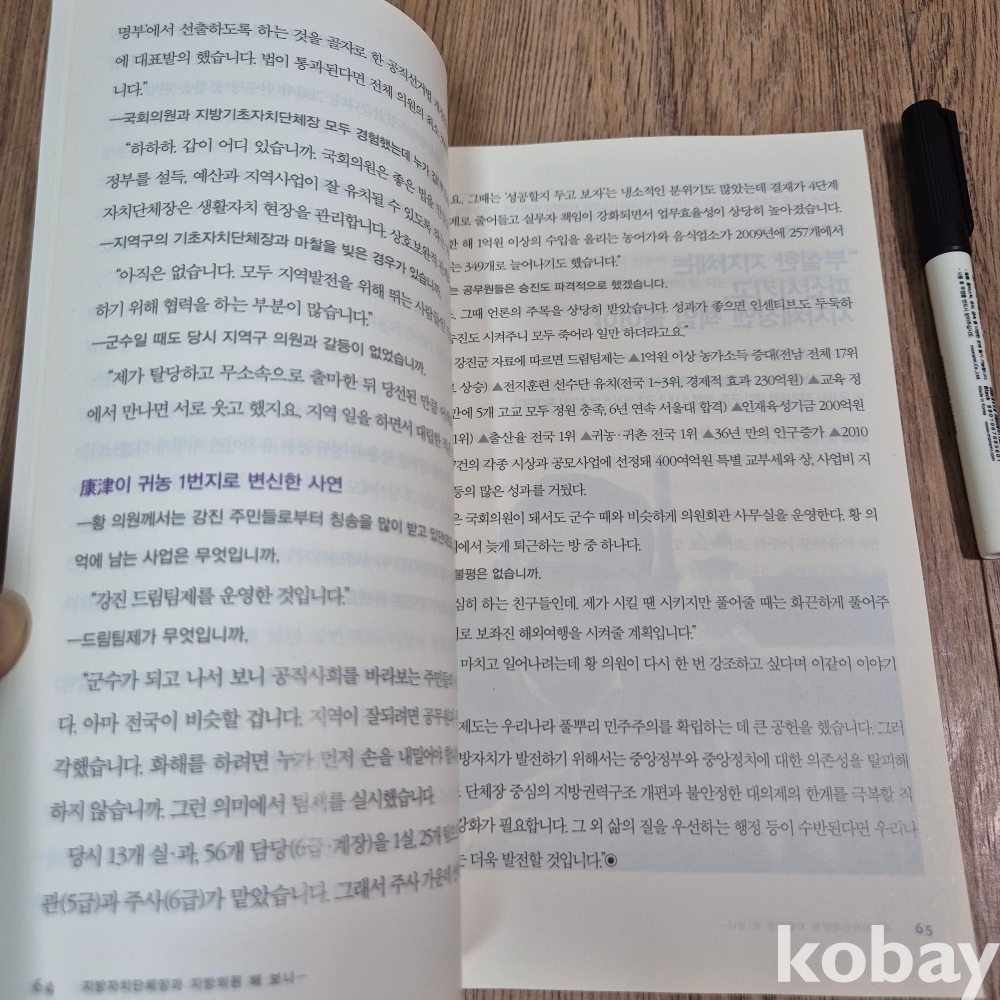 명부'에서 선출하도록 하는 것을 골자로 한 공직선거법
에 대표발의 했습니다. 법이 통과된다면 전체 의원의 최소
니다."
—국회의원과 지방기초자치단체장 모두 경험했는데 누가
"하하하. 갑이 어디 있습니까. 국회의원은 좋은 법을
정부를 설득, 예산과 지역사업이 잘 유치될 수 있도록 하는
자치단체장은 생활자치 현장을 관리합니다. 상호보완적
—지역구의 기초자치단체장과 마찰을 빚은 경우가 있습니까.
"아직은 없습니다. 모두 지역발전을 위해 뛰는 사람들
하기 위해 협력을 하는 부분이 많습니다."
—군수일 때도 당시 지역구 의원과 갈등이 없었습니까.
"제가 탈당하고 무소속으로 출마한 뒤 당선된 만큼
에서 만나면 서로 웃고 했지요. 지역 일을 하면서 대립한
康津이 귀농 1번지로 변신한 사연
—황 의원께서는 강진 주민들로부터 칭송을 많이 받고
억에 남는 사업은 무엇입니까.
"강진 드림팀제를 운영한 것입니다."
—드림팀제가 무엇입니까.
"군수가 되고 나서 보니 공직사회를 바라보는 주민들
다. 아마 전국이 비슷할 겁니다. 지역이 잘되려면
각했습니다. 화해를 하려면 누가 먼저 손을 내밀어야
하지 않습니까. 그런 의미에서 팀제를 실시했습니다
당시 13개 실·과, 56개 담당(6급·계장)을 1실, 25개
관(5급)과 주사(6급)가 맡았습니다. 그래서 주사 가운데
64 지방자치단체장과 지방의원 해 보니…
요. 그때는 '성공할지 두고 보자'는 냉소적인 분위기도 많았는데 결재가 4단계
계로 줄어들고 실무자 책임이 강화되면서 업무효율성이 상당히 높아졌습니다.
한 해 1억원 이상의 수입을 올리는 농어가와 음식업소가 2009년에 257개에서
는 349개로 늘어나기도 했습니다."
는 공무원들은 승진도 파격적으로 했겠습니다.
. 그때 언론의 주목을 상당히 받았습니다. 성과가 좋으면 인센티브도 두둑하
승진도 시켜주니 모두 죽어라 일만 하더라고요."
강진군 자료에 따르면 드림팀제는 ▲1억원 이상 농가소득 증대(전남 전체 17위
상승) ▲전지훈련 선수단 유치(전국 1~3위, 경제적 효과 230억원) ▲교육 정
만에 5개 고교 모두 정원 충족, 6년 연속 서울대 합격) ▲인재육성기금 200억원
1위) ▲출산율 전국 1위 ▲귀농·귀촌 전국 1위 ▲36년 만의 인구증가 ▲2010
건의 각종 시상과 공모사업에 선정돼 400여억원 특별 교부세와 상, 사업비 지
등의 많은 성과를 거뒀다.
은 국회의원이 돼서도 군수 때와 비슷하게 의원회관 사무실을 운영한다. 황 의
에서 늦게 퇴근하는 방 중 하나다.
불평은 없습니까.
심히 하는 친구들인데, 제가 시킬 땐 시키지만 풀어줄 때는 화끈하게 풀어주
로 보좌진 해외여행을 시켜줄 계획입니다."
마치고 일어나려는데 황 의원이 다시 한 번 강조하고 싶다며 이같이 이야기
제도는 우리나라 풀뿌리 민주주의를 확립하는 데 큰 공헌을 했습니다. 그러
방자치가 발전하기 위해서는 중앙정부와 중앙정치에 대한 의존성을 탈피해
. 단체장 중심의 지방권력구조 개편과 불안정한 대의제의 한계를 극복할 직
강화가 필요합니다. 그 외 삶의 질을 우선하는 행정 등이 수반된다면 우리나
는 더욱 발전할 것입니다."◉
65
kobay